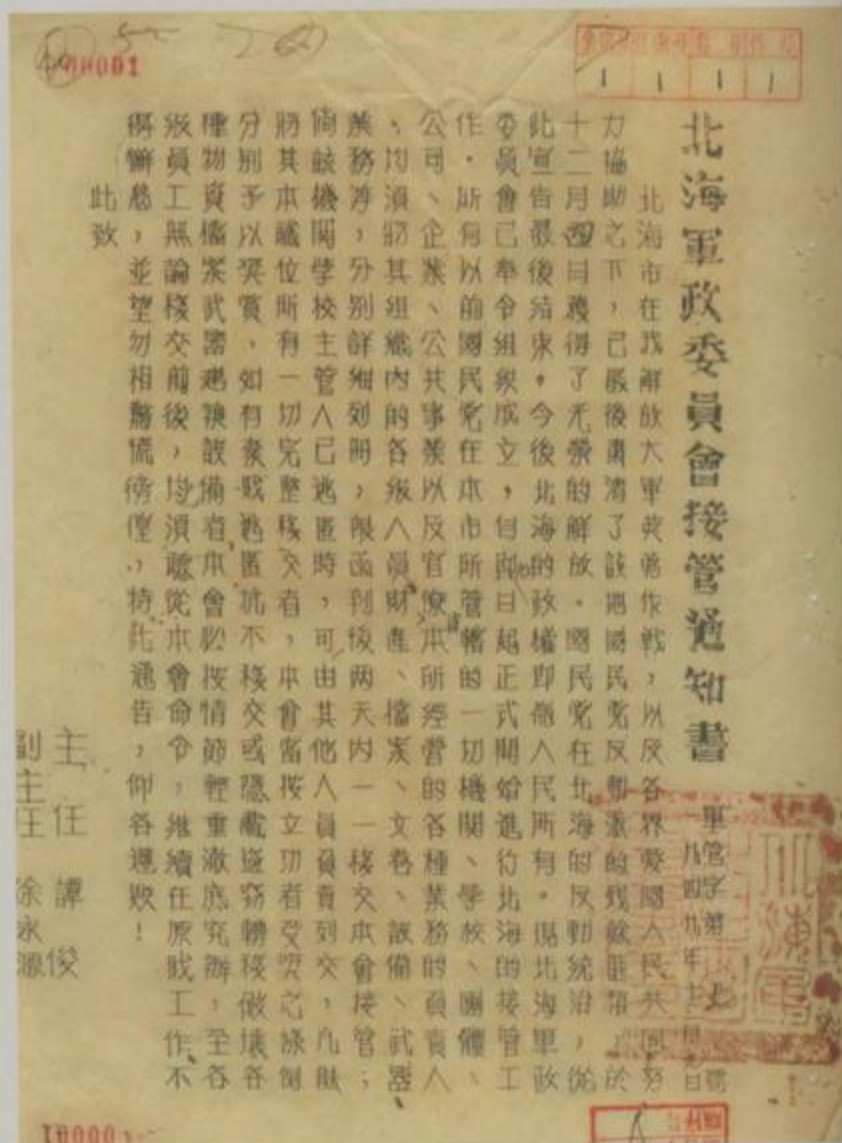 00001
1 1 1 1
北海軍政委員會接管通知書
軍管字第 號
一九四九年十二月 日
北海市在我解放大軍英勇作戰，以及各界愛國人民共同努
力協助之下，已最後肅清了該地國民党反動派的殘餘匪幫，於
十二月四日獲得了光榮的解放。國民党在北海的反動統治，從
此宣告最後結束。今後北海的政權即爲人民所有。現北海軍政
委員會已奉令組織成立，自即日起正式開始進行北海的接管工
作。所有以前國民党在本市所管轄的一切機關、學校、團體、
公司、企業、公共事業以及官僚資本所經營的各種業務的負責人
，均須將其組織內的各級人員財產、檔案、文卷、設備、武器
業務等，分別詳細列冊，限函到後两天內一一移交本會接管；
倘該機關學校主管人已逃匿時，可由其他人員負責列交，凡能
將其本職位所有一切完整移交者，本會當按立功者受獎之條例
分別予以奖賞，如有棄职逃匿抗不移交或隱藏盜窃轉移破壞各
種物資檔案武器 設備者本會必按情節輕重澈底究辦，至各
級員工無論移交前後，均須聽從本會命令，繼續在原职工作不
得懈怠，並望勿相驚慌徬徨，特此通告，仰各遵照！
此致
主任 譚俊
副主任 徐永源